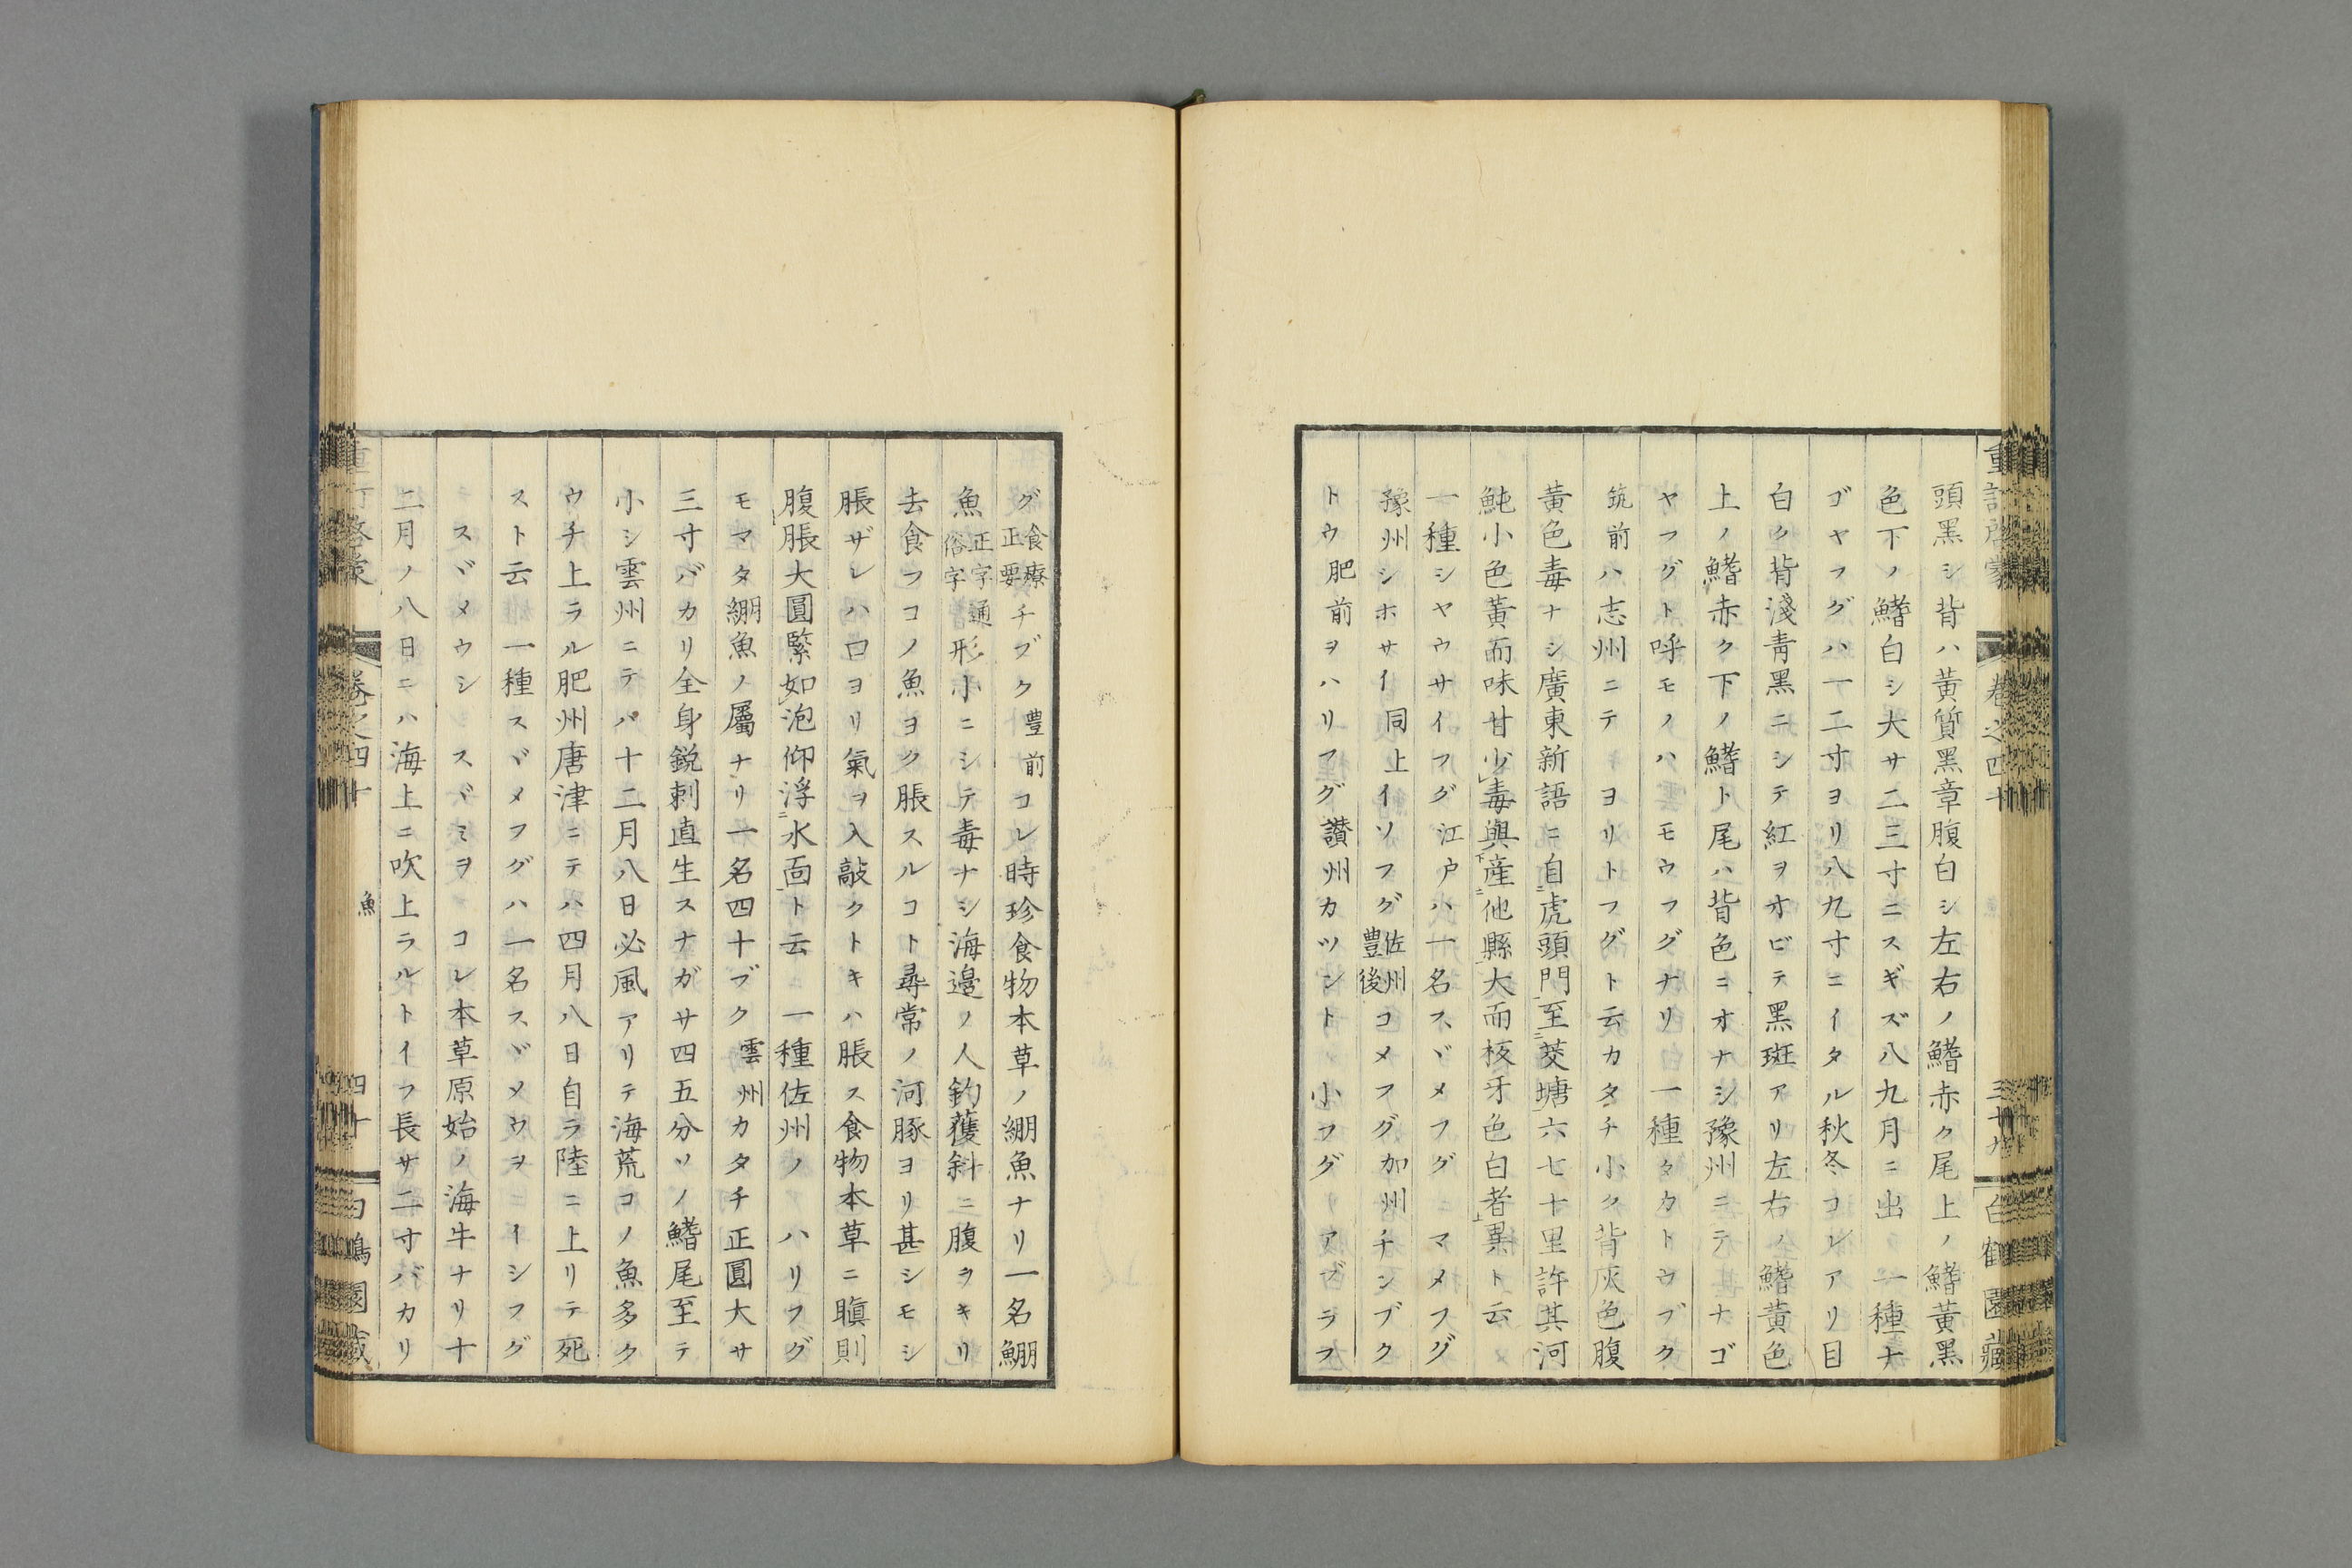 頭黑シ背ハ黃質黑章腹白シ左右ノ鰭赤ク尾上ノ鰭黃黑
色下ノ鰭白シ大サ二三寸ニスギズ八九月ニ出 一種ナ
ゴヤフグハ一二寸ヨリ八九寸ニイタル秋冬コレアリ目
白ク背淺靑黑ニシテ紅ヲオビテ黑斑アリ左右ノ鰭黃色
上ノ鰭赤ク下ノ鰭ト尾ハ背色ニオナシ豫州ニテナゴ
ヤフグト呼モノハモウフグナリ 一種タカトウブク
筑前ハ志州ニテキヨリトフグト云カタチ小ク背灰色腹
黃色毒ナシ廣東新語ニ自虎頭門至茭塘六七十里許其河
魨小色黃而味甘少毒與產他縣大而板牙色白者異ト云
一種シヤウサイフグ江戶ハ一名スヾメフグ マメフグ
豫州シホサイ同上イソフグ佐州豊後コメフグ加州チンブク
トウ肥前ヲハリフグ讃州カツント 小フグ アブラフ
グ食療正要チブク豊前コレ時珍食物本草ノ綳魚ナリ一名鯛
魚正字通俗字形小ニシテ毒ナシ海邉ノ人釣獲斜ニ腹ヲキリ
去食フコノ魚ヨク脹スルコト尋常ノ河豚ヨリ甚シモシ
脹ザレハ口ヨリ氣ヲ入敲クトキハ脹ス食物本草ニ瞋則
腹脹大圓緊如泡仰浮水面ト云 一種佐州ノハリフグ
モマタ綳魚ノ屬ナリ一名四十ブク雲州カタチ正圓大サ
三寸バカリ全身鋭刺直生スナガサ四五分ソノ鰭尾至テ
小シ雲州ニテハ十二月八日必風アリテ海荒コノ魚多ク
ウチ上ラル肥州唐津ニテハ四月八日自ラ陸ニ上リテ死
スト云 一種スヾメフグハ一名スヾメウヲ イシフグ
スヾメウシ スヾミヲ コレ本草原始ノ海牛ナリ十
二月ノ八日ニハ海上ニ吹上ラルトイフ長サ二寸バカリ
卷之四十 魚 四十